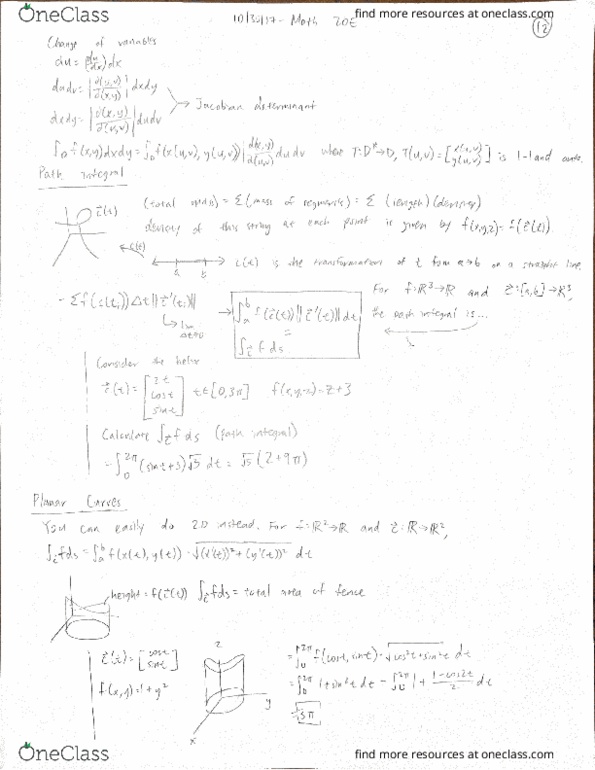 OneClass
find more resources at oneclass.com
10/30/17 - Math 20E
12
Change of variables
du = (du/dx) dx
dudv = |∂(u,v)/∂(x,y)| dxdy
Jacobian determinant
dxdy = |∂(x,y)/∂(u,v)| dudv
∫_D f(x,y)dxdy = ∫_D* f(x(u,v), y(u,v)) |d(x,y)/d(u,v)| du dv where T: D* → D, T(u,v) = [x(u,v) y(u,v)] is 1-1 and onto.
Path integral
c⃗(t)
(total mass) = Σ(mass of segments) = Σ (length)(density)
density of this string at each point is given by f(x,y,z) = f(c⃗(t)).
c(t)
a b
c(t) is the transformation of t from a→b on a straight line.
~ Σf(c(tᵢ)) Δt ||c⃗'(tᵢ)||
lim Δt→0
→ ∫_a^b f(c⃗(t)) ||c⃗'(t)|| dt
=
∫_c⃗ f ds
For f: ℝ³→ℝ and c⃗: [a,b]→ℝ³,
the path integral is...
Consider the helix
c⃗(t) = [2t cost sint] t∈[0,3π] f(x,y,z) = z+3
Calculate ∫_c⃗ f ds (path integral)
= ∫_0^2π (sint+3)√5 dt = √5 (2+9π)
Planar Curves
You can easily do 2D instead. For f: ℝ²→ℝ and c⃗: ℝ→ℝ²,
∫_c⃗ fds = ∫_a^b f(x(t), y(t)) · √((x'(t))² + (y'(t))²) dt
height = f(c⃗(t)) ∫_c⃗ fds = total area of fence
c⃗(t) = [cost sint]
f(x,y) = 1+y²
z
y
x
= ∫_0^2π f(cost, sint) · √(cos²t+sin²t) dt
= ∫_0^2π 1+sin²t dt = ∫_0^2π 1 + (1-cos2t)/2 dt
= 3π
OneClass
find more resources at oneclass.com